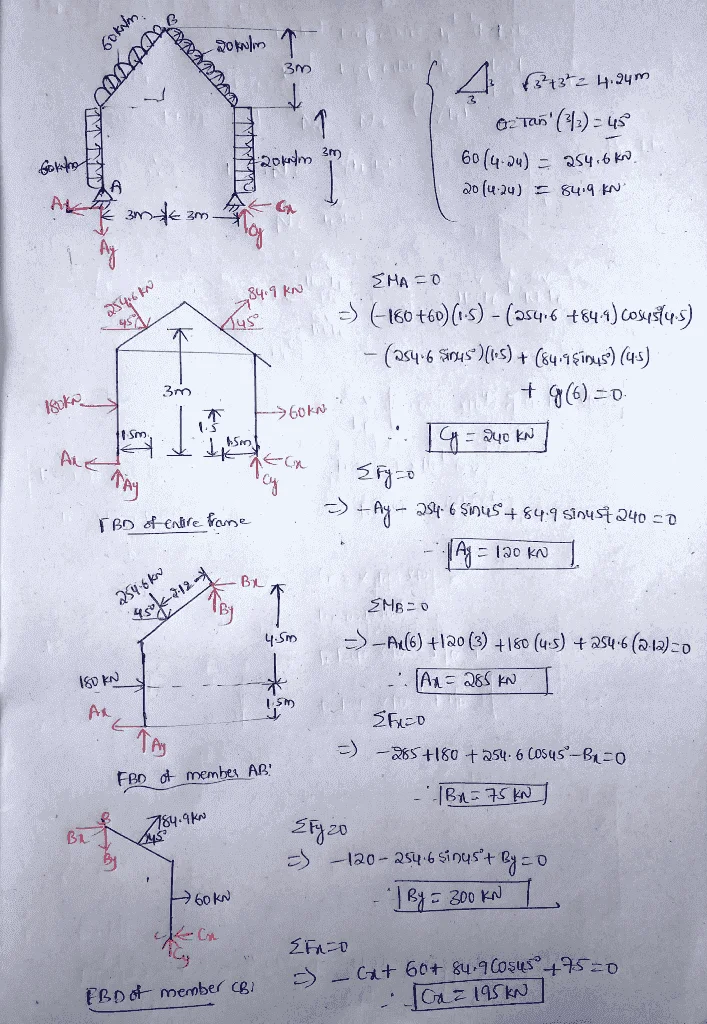 60kN/m.
B
20kN/m
3m
60kN/m
20kN/m
3m
A
Ax
3m
3m
Cx
Ay
Cy
3
3
√3²+3² = 4.24m
θ=Tan'(3/3) = 45°
60(4.24) = 254.6 kN.
20(4.24) = 84.9 kN
254.6 kN
45°
84.9 kN
45°
180kN
3m
60kN
1.5m
1.5
1.5m
Ax
Ay
Cx
Cy
FBD of entire frame
ΣMA = 0
=) (-180+60)(1.5) - (254.6 + 84.9) cos45°(4.5)
- (254.6 sin45°)(1.5) + (84.9 sin45°)(4.5)
+ Cy(6) = 0.
∴ Cy = 240 kN
ΣFy=0
=) +Ay - 254.6 sin45° + 84.9 sin45° + 240 = 0
∴ Ay = 120 kN
254.6 kN
45°
2.12
Bx
By
4.5m
180 kN
1.5m
Ax
Ay
FBD of member AB:
ΣMB=0
=) -Ax(6) + 120(3) + 180(4.5) + 254.6(2.12)=0
∴ Ax = 285 kN
ΣFx=0
=) -285 + 180 + 254.6 cos45° - Bx = 0
∴ Bx = 75 kN
B
Bx
By
84.9kN
45°
60kN
C
Cx
Cy
FBD of member CB:
ΣFy=0
=) -120 - 254.6 sin45° + By = 0
∴ By = 300 kN
ΣFx=0
=) -Cx + 60 + 84.9 cos45° + 75 = 0
∴ Cx = 195 kN